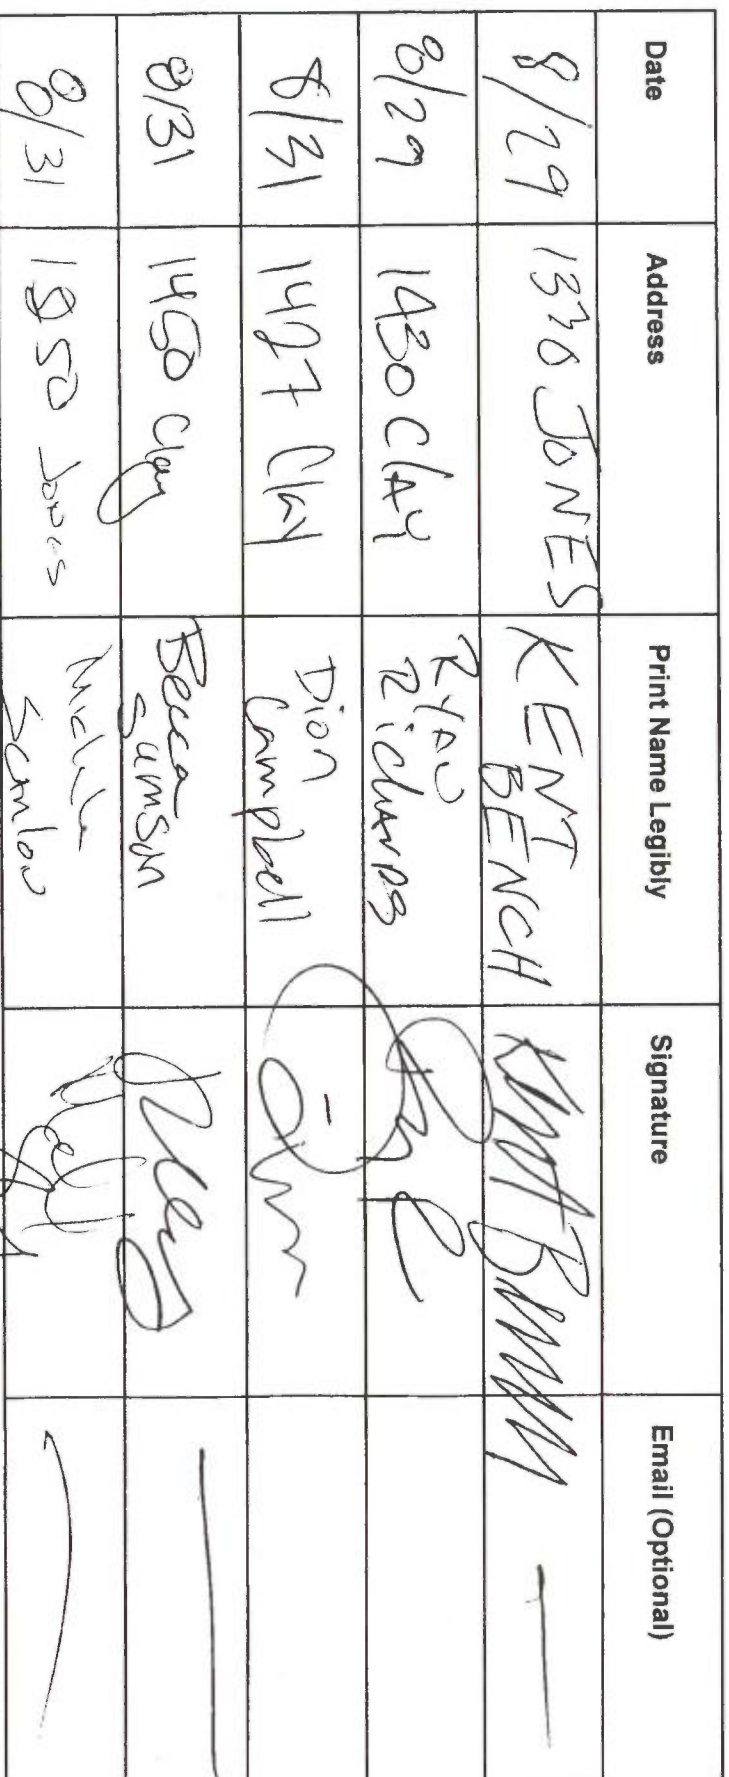 Date Address Print Name Legibly Signature Email (Optional)
8/29 1330 JONES KENT BENCH
8/29 1430 Clay Ryan Richards
8/31 1427 Clay Dion Campbell
8/31 1450 Clay Becca Sumsin
8/31 1850 Jones Michelle Scanlon